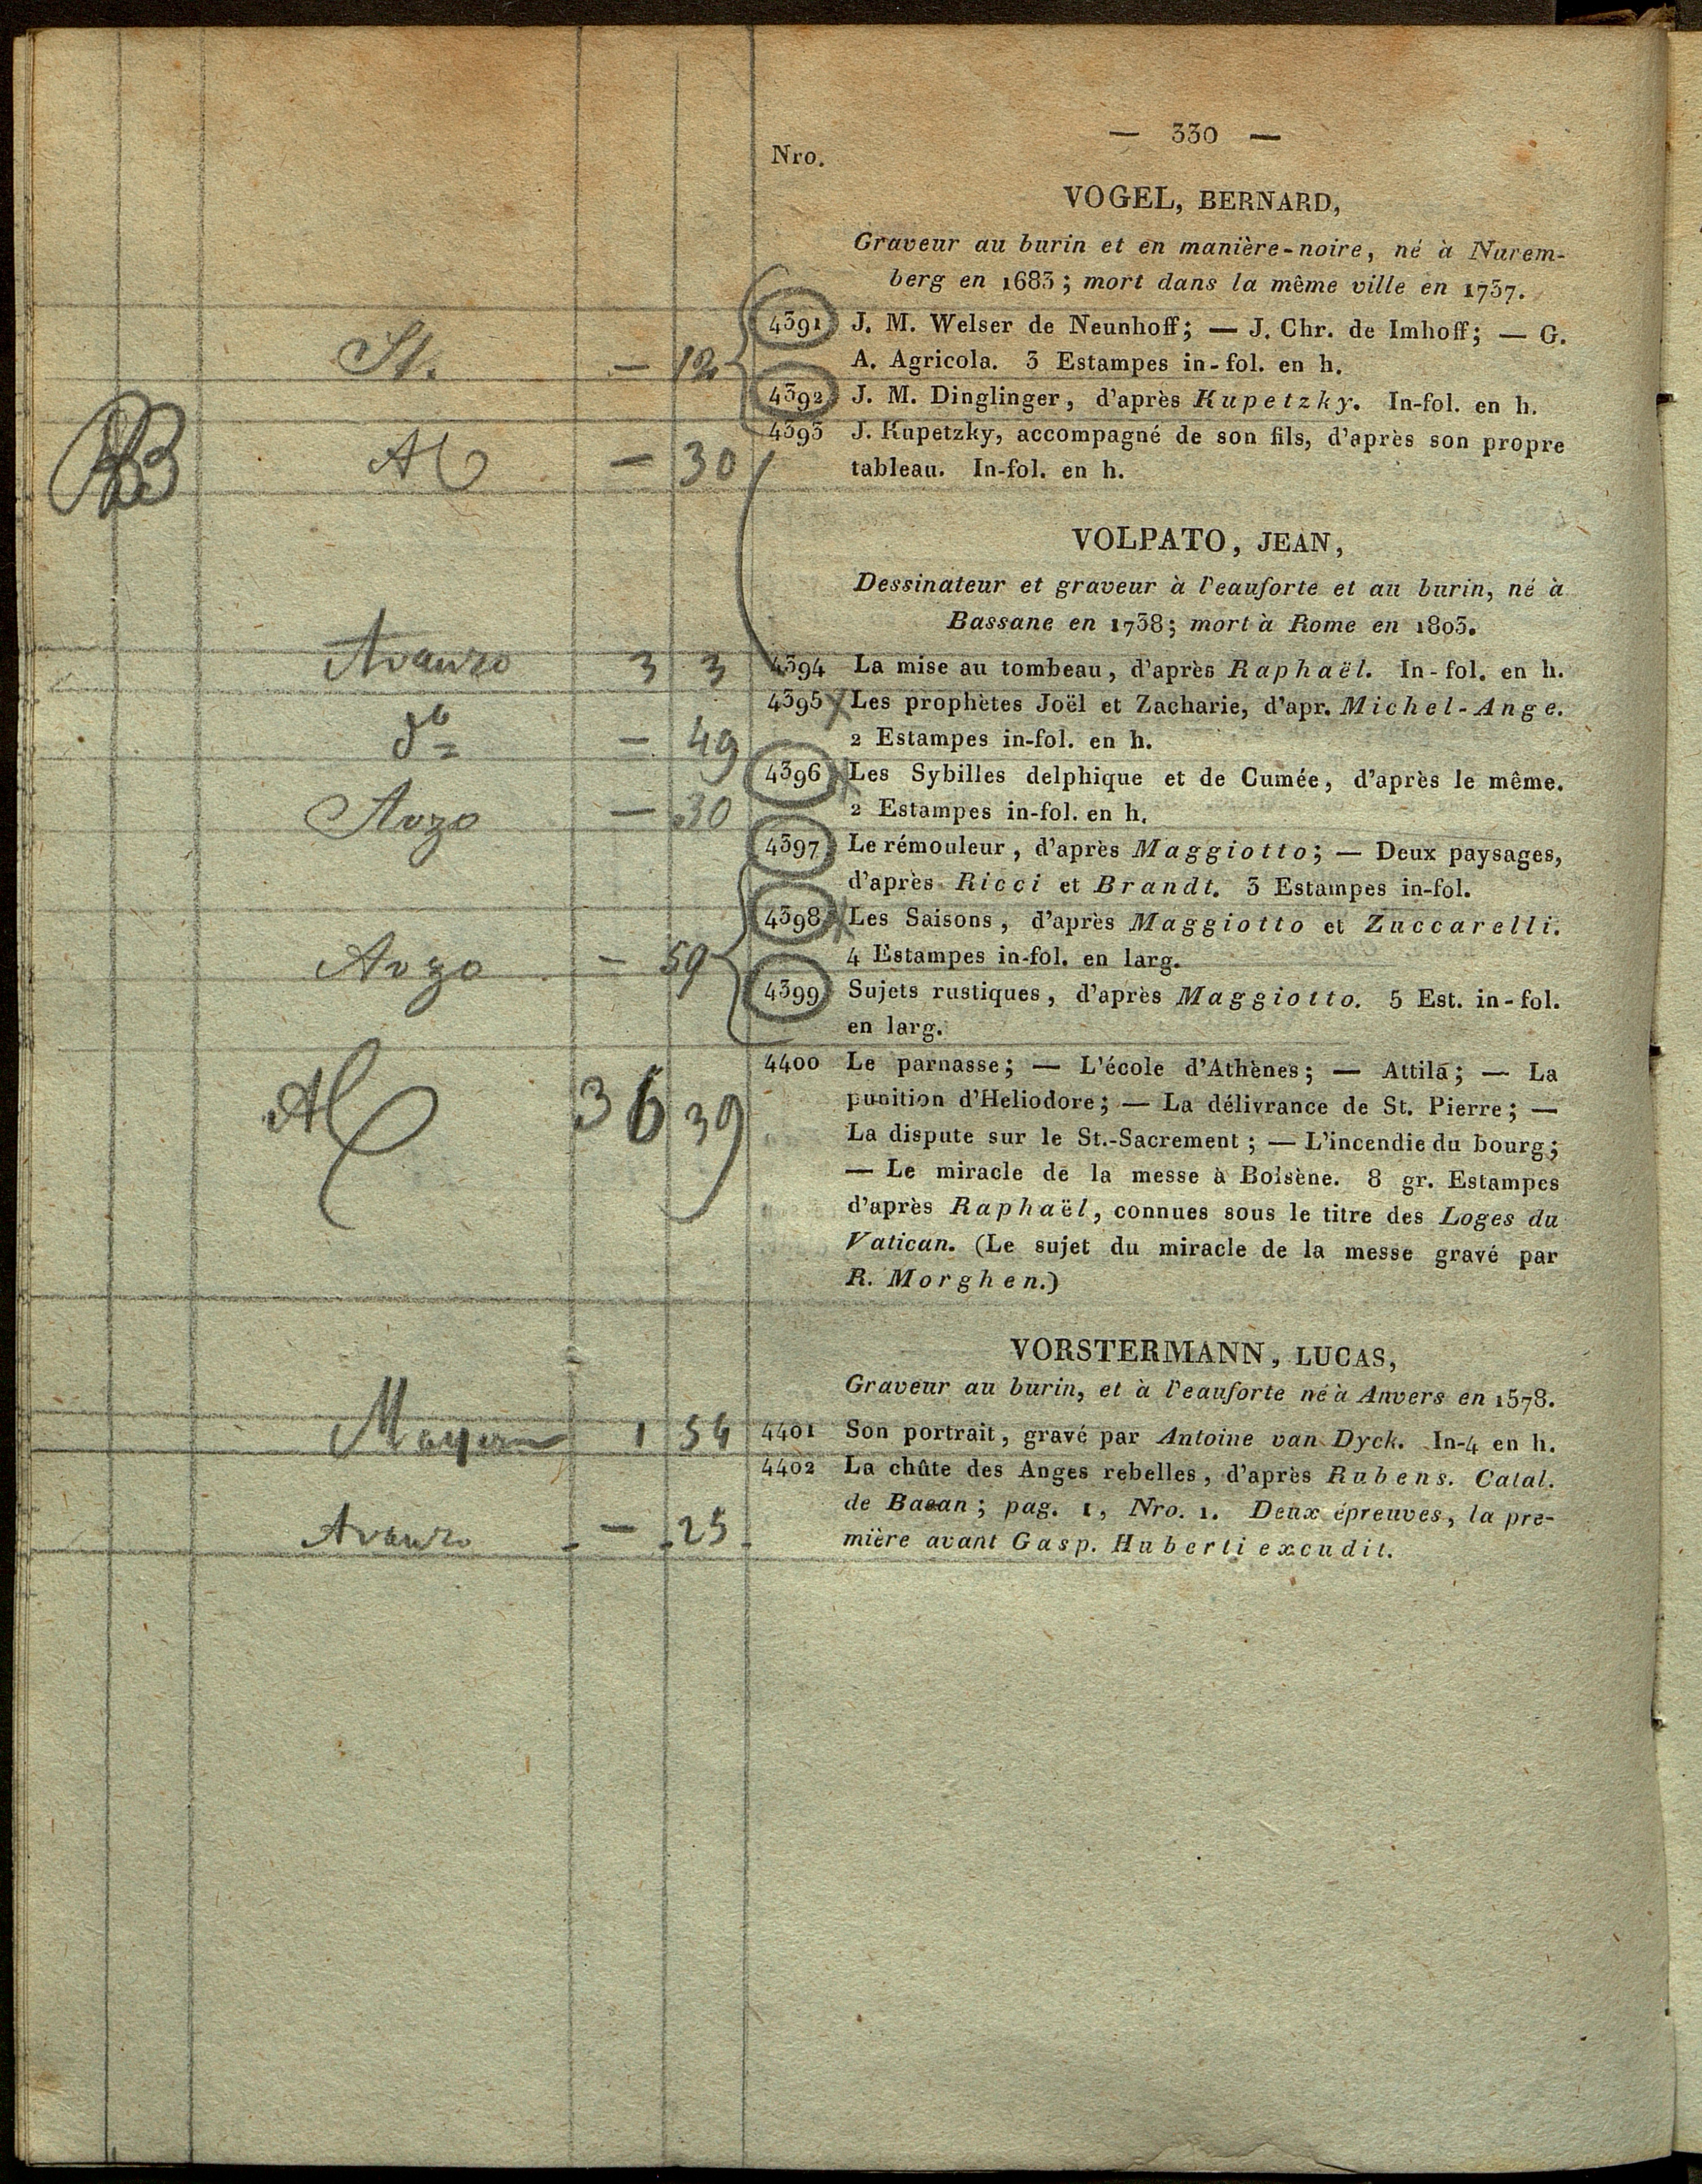 — 330 —
Nro.
VOGEL, BERNARD,
Graveur au burin et en manière-noire, né à Nurem-
berg en 1683; mort dans la même ville en 1737.
4391 J. M. Welser de Neunhoff; — J. Chr. de Imhoff; — G.
St. — 12 A. Agricola. 3 Estampes in-fol. en h.
4392 J. M. Dinglinger, d'après Kupetzky. In-fol. en h.
4393 J. Kupetzky, accompagné de son fils, d'après son propre
— 30 tableau. In-fol. en h.
VOLPATO, JEAN,
Dessinateur et graveur à l'eauforte et au burin, né à
Bassane en 1738; mort à Rome en 1803.
Avanzo 3 3 4394 La mise au tombeau, d'après Raphaël. In-fol. en h.
4395 Les prophètes Joël et Zacharie, d'apr. Michel-Ange.
do — 49 2 Estampes in-fol. en h.
4396 Les Sybilles delphique et de Cumée, d'après le même.
Avzo — 30 2 Estampes in-fol. en h.
4397 Le rémouleur, d'après Maggiotto; — Deux paysages,
d'après Ricci et Brandt. 3 Estampes in-fol.
4398 Les Saisons, d'après Maggiotto et Zuccarelli.
Avzo — 59 4 Estampes in-fol. en larg.
4399 Sujets rustiques, d'après Maggiotto. 5 Est. in-fol.
en larg.
4400 Le parnasse; — L'école d'Athènes; — Attila; — La
36 39 punition d'Heliodore; — La délivrance de St. Pierre; —
La dispute sur le St.-Sacrement; — L'incendie du bourg;
— Le miracle de la messe à Bolsène. 8 gr. Estampes
d'après Raphaël, connues sous le titre des Loges du
Vatican. (Le sujet du miracle de la messe gravé par
R. Morghen.)
VORSTERMANN, LUCAS,
Graveur au burin, et à l'eauforte né à Anvers en 1578.
1 54 4401 Son portrait, gravé par Antoine van Dyck. In-4 en h.
4402 La chûte des Anges rebelles, d'après Rubens. Catal.
de Basan; pag. 1, Nro. 1. Deux épreuves, la pre-
Avanzo — 25 mière avant Gasp. Huberti excudit.